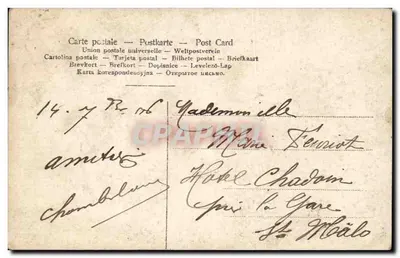 Carte postale – Postkarte – Post Card
Union postale universelle – Weltpostverein
Cartolina postale – Tarjeta postal – Bilhete postal – Briefkaart
Brevkort – Brefkort – Dopisnice – Levelező-Lap
Karta korespondencyjna – Открытое письмо.
14 - 7 06
Mademoiselle
Marie
Hôtel
près la Gare
St Mâlo
amitiés